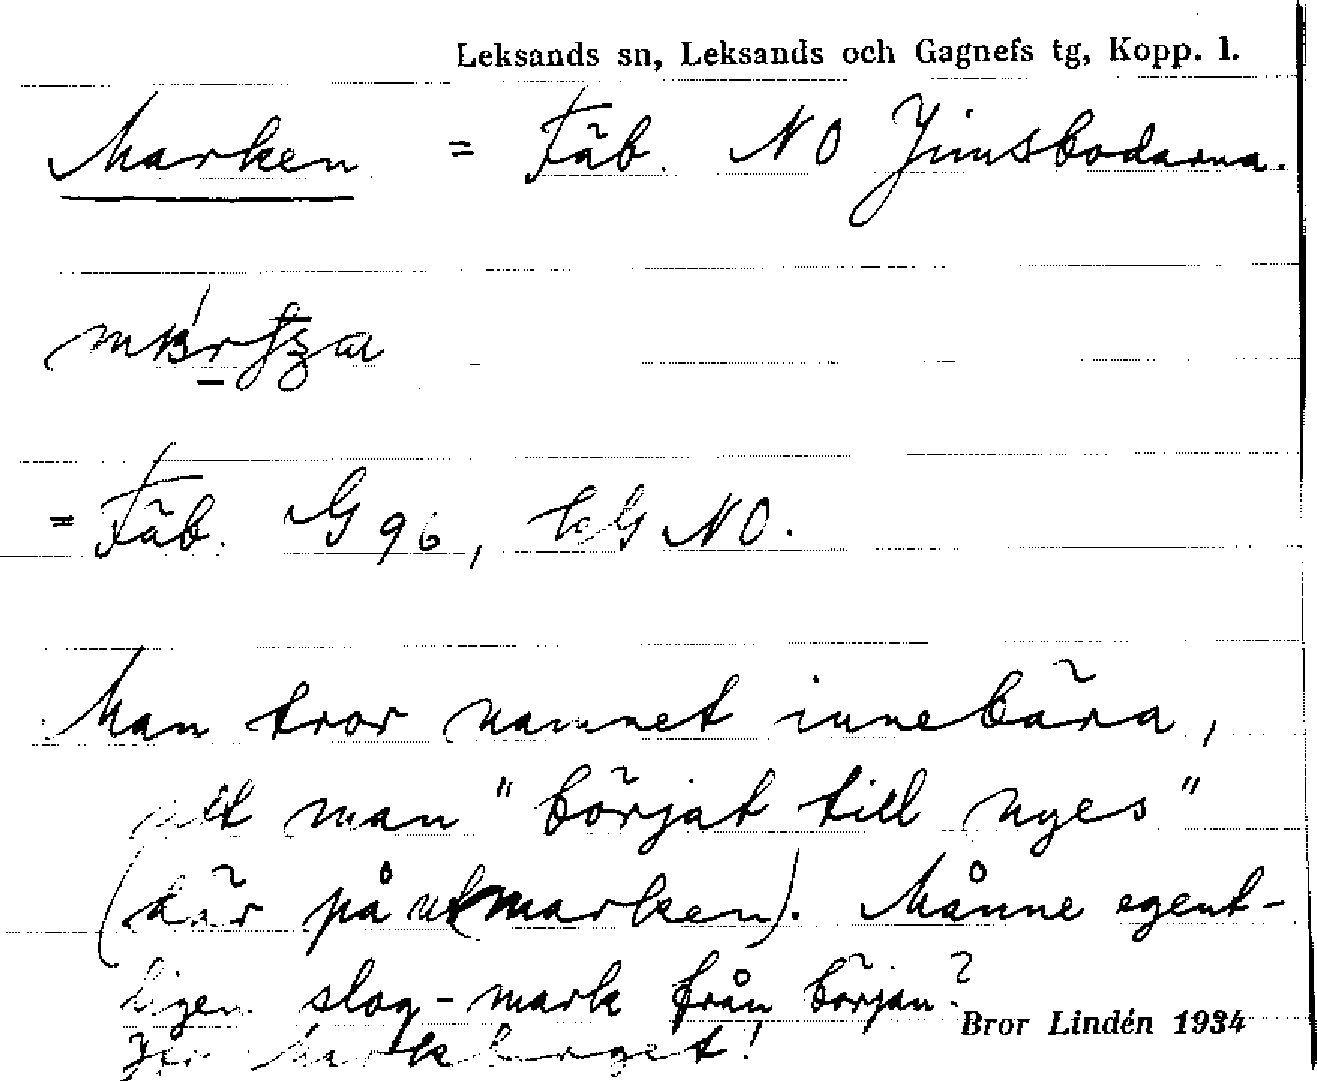 Leksands sn, Leksands och Gagnefs tg, Kopp. l.
Marken = Fäb. NO Jimsbodarna.
= Fäb. G 96, kG NO.
Man tror namnet innebära,
att man "börjat till nyes"
(där på utmarken). Månne egent-
ligen slog-mark från början?
Bror Lindén 1934
Jfr Markberget!